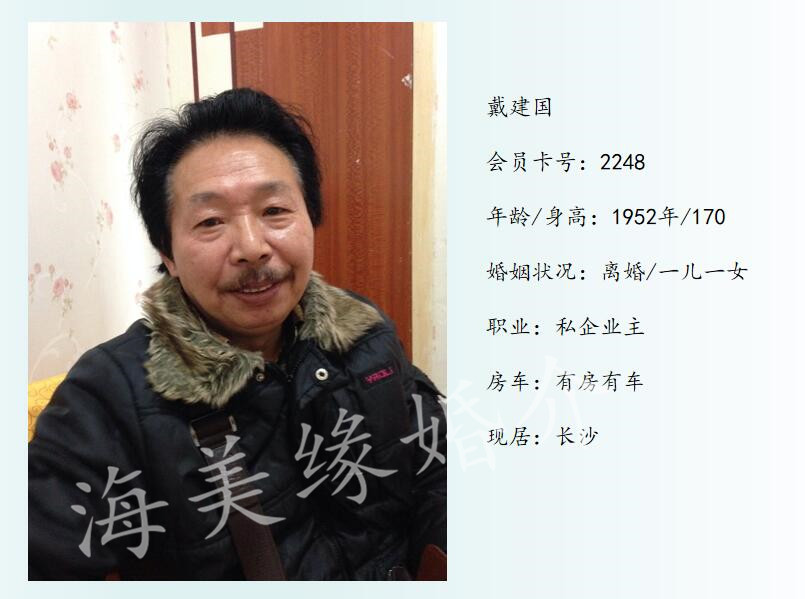 戴建国
会员卡号：2248
年龄/身高：1952年/170
婚姻状况：离婚/一儿一女
职业：私企业主
房车：有房有车
现居：长沙
YAOLI
海美缘婚介